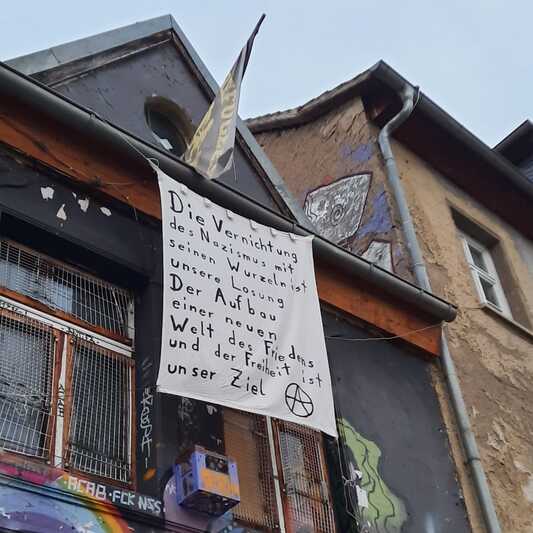 Die Vernichtung
des Nazismus mit
seinen Wurzeln ist
unsere Losung
Der Aufbau
einer neuen
Welt des Friedens
und der Freiheit ist
unser Ziel
ACAB·FCK NSS